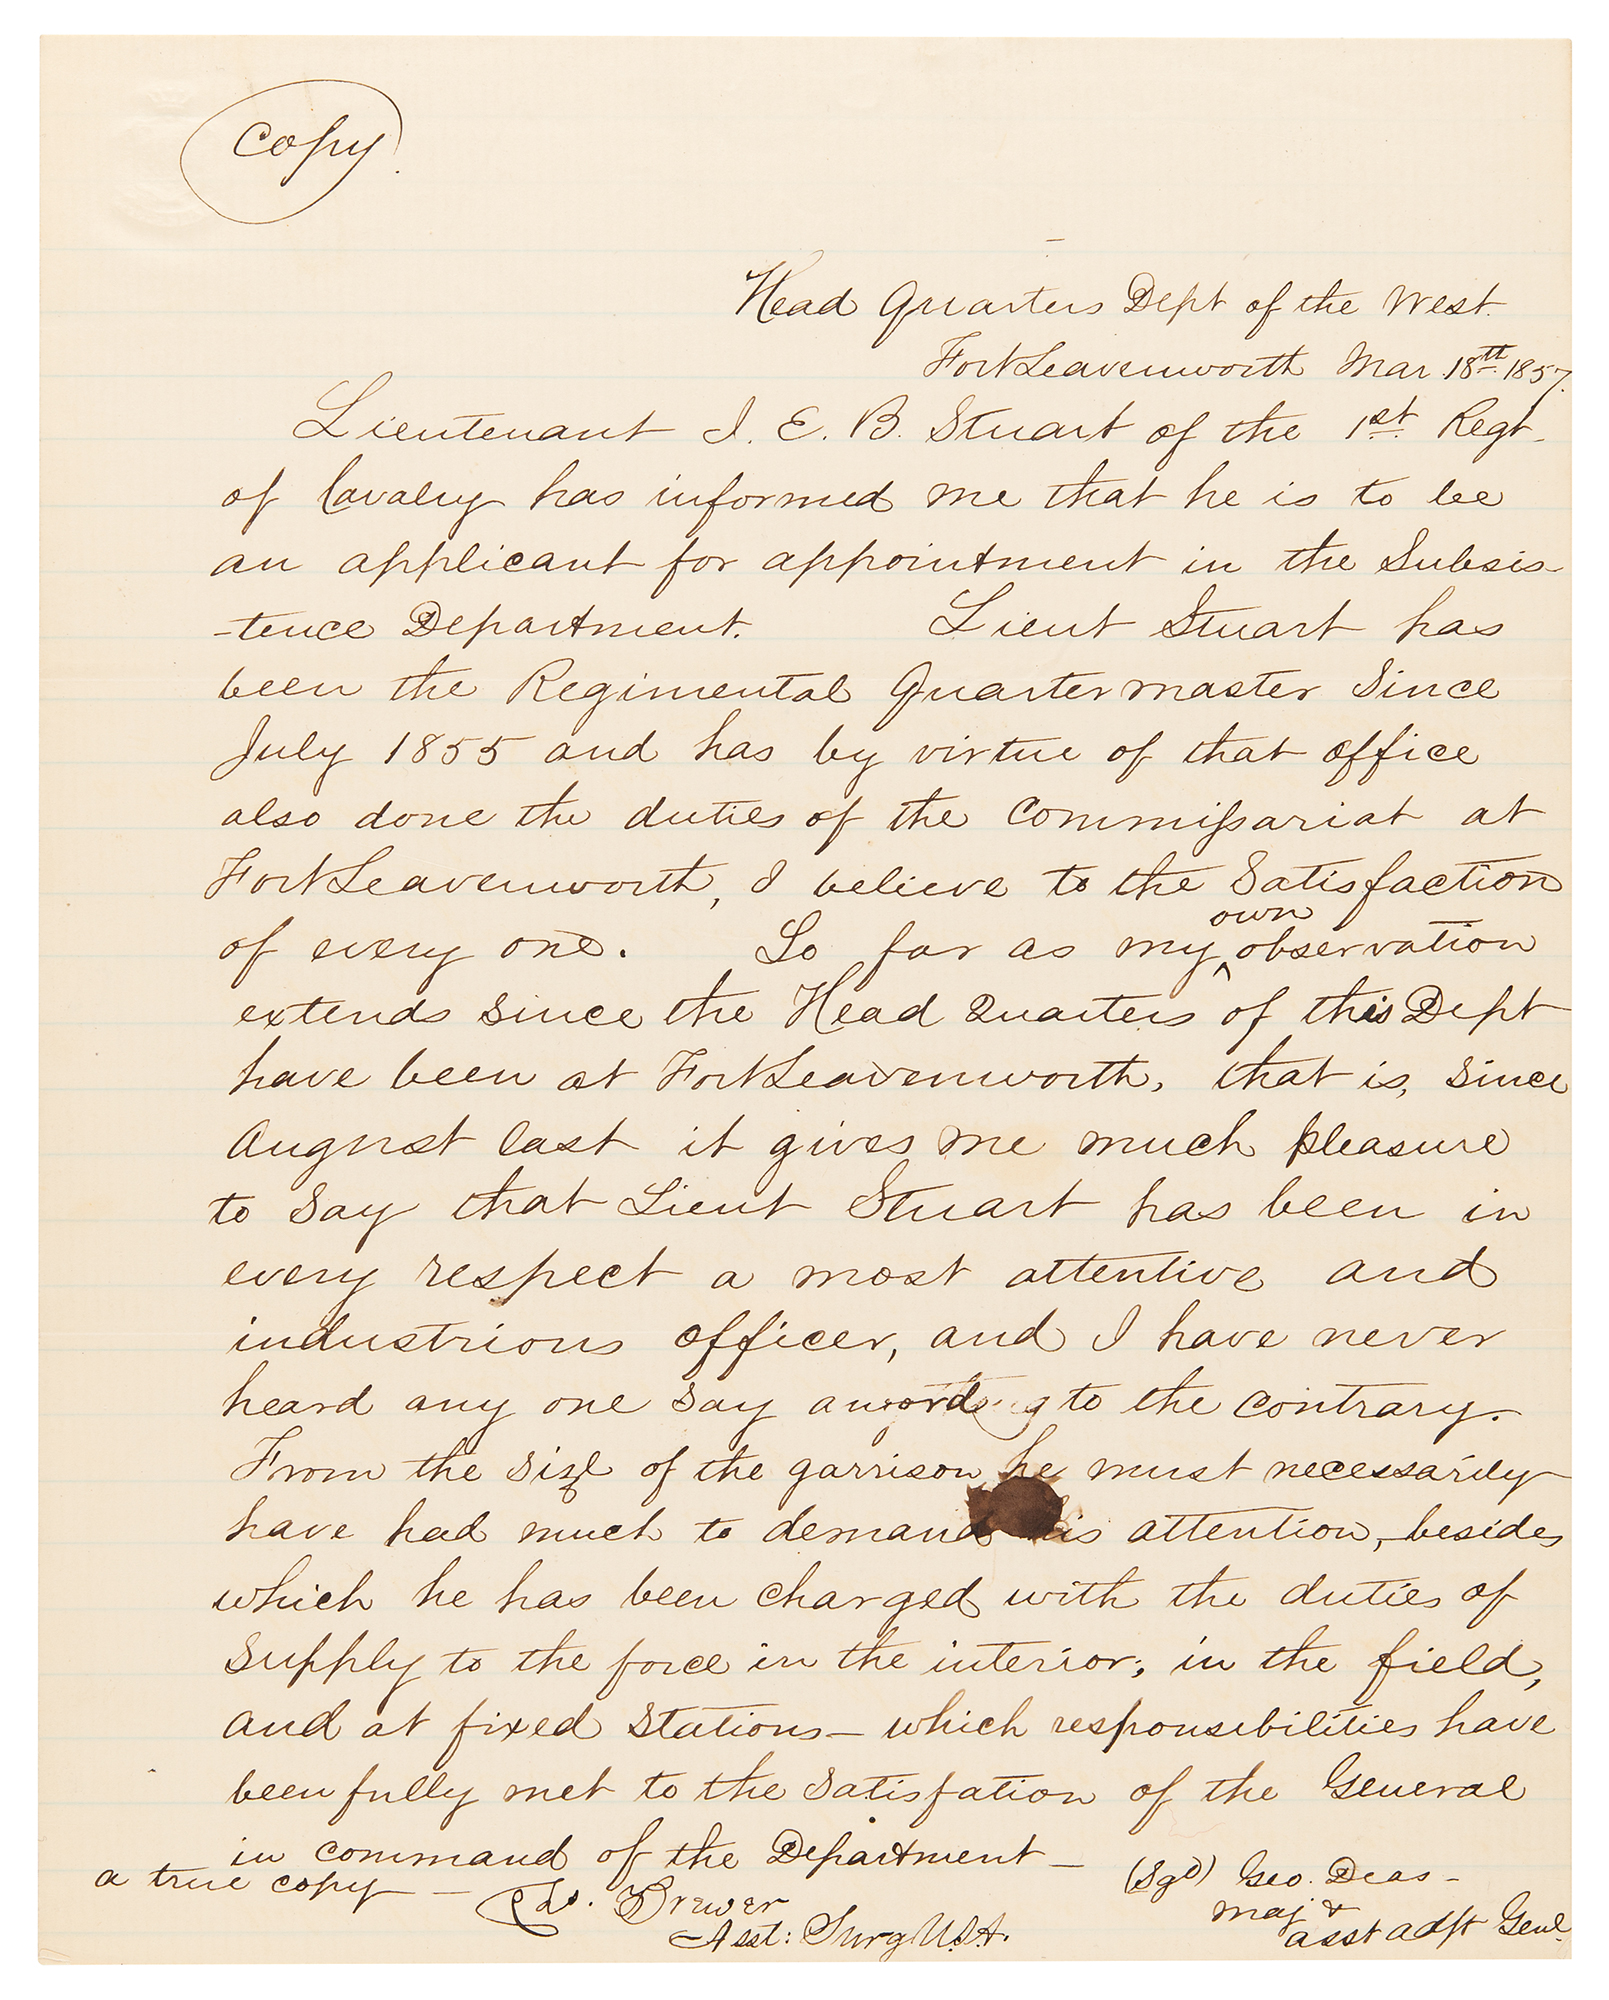 Copy
Head Quarters Dept of the West.
Fort Leavenworth Mar. 18th 1857.
Lieutenant J. E. B. Stuart of the 1st Regt.
of Cavalry has informed me that he is to be
an applicant for appointment in the Subsis-
-tence Department. Lieut Stuart has
been the Regimental Quartermaster since
July 1855 and has by virtue of that office
also done the duties of the Commissariat at
Fort Leavenworth, I believe to the Satisfaction
of every one. So far as my own observation
extends since the Head Quarters of this Dept
have been at Fort Leavenworth, that is, since
August last it gives me much pleasure
to say that Lieut Stuart has been in
every respect a most attentive and
industrious officer, and I have never
heard any one say a word to the contrary.
From the size of the garrison he must necessarily
have had much to demand his attention, besides
which he has been charged with the duties of
supply to the force in the interior; in the field,
and at fixed stations — which responsibilities have
been fully met to the satisfation of the General
in command of the Department —
a true copy — Chs. Brewer
Asst: Surg U.S.A.
(Sgd) Geo. Deas -
Maj &
asst adjt Genl.